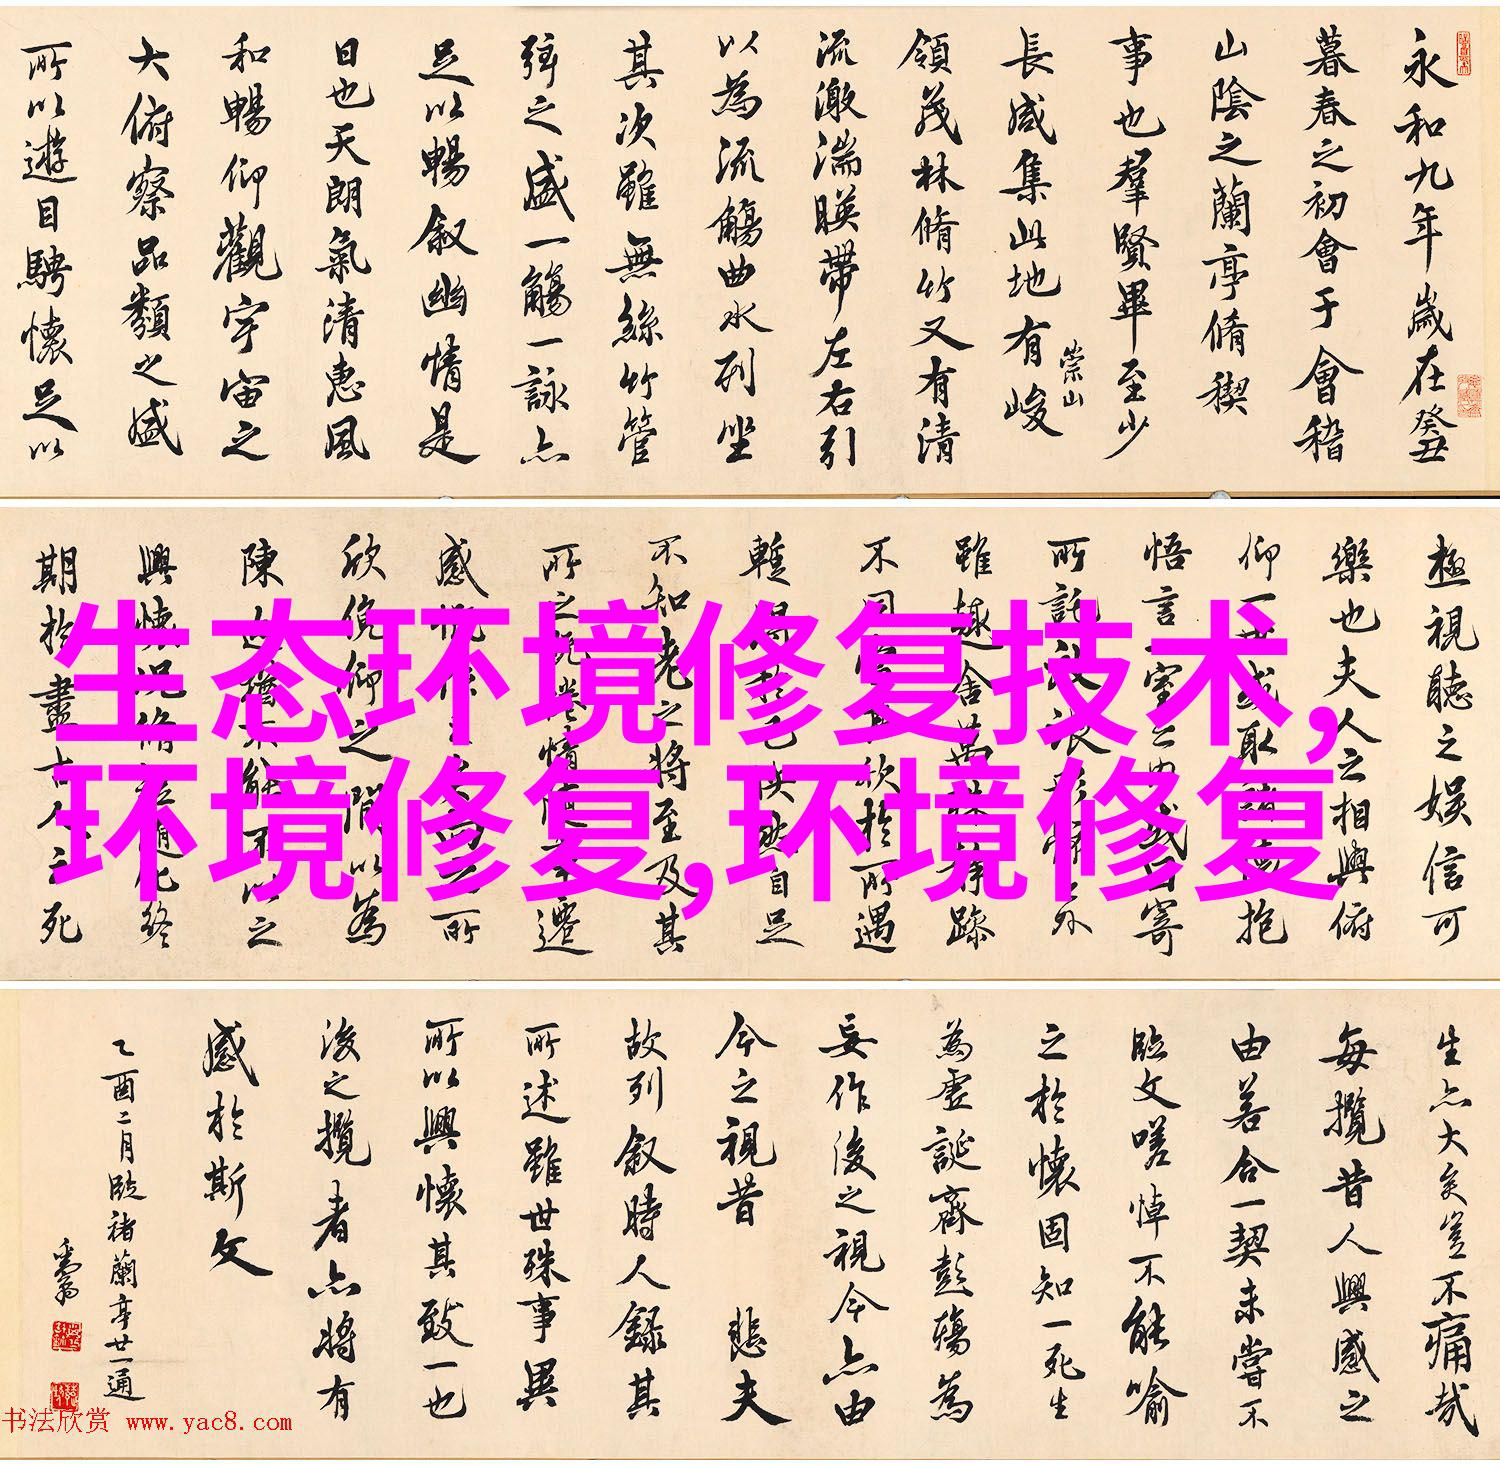 永和九年歲在癸丑
暮春之初會于會稽
山陰之蘭亭脩稧
事也羣賢畢至少
長咸集此地有峻
領茂林脩竹又有清
崇山
流激湍暎帶左右引
以為流觴曲水列坐
其次雖無絲竹管
弦之盛一觴一詠亦
足以暢敘幽情是
日也天朗氣清惠風
和暢仰觀宇宙之
大俯察品類之盛
所以遊目騁懷足以
極視聽之娛信可
樂也夫人之相與俯
仰一世或取諸懷抱
悟言一室之內或因寄
所託放浪形骸之外
雖趣舍萬殊靜躁
不同當其欣於所遇
暫得於己快然自足
不知老之將至及其
所之既惓情隨事遷
感慨係之矣向之所
欣俛仰之間以為
陳迹猶不能不以之
興懷況脩短隨化終
期於盡古人云死
生亦大矣豈不痛哉
每攬昔人興感之
由若合一契未嘗不
臨文嗟悼不能喻
之於懷固知一死生
為虛誕齊彭殤為
妄作後之視今亦由
今之視昔 悲夫
故列敘時人錄其
所述雖世殊事異
所以興懷其致一也
後之攬者亦將有
感於斯文
乙酉二月臨褚蘭亭廿一通
生态环境修复技术,
环境修复,环境修复
书法欣赏 www.yac8.com